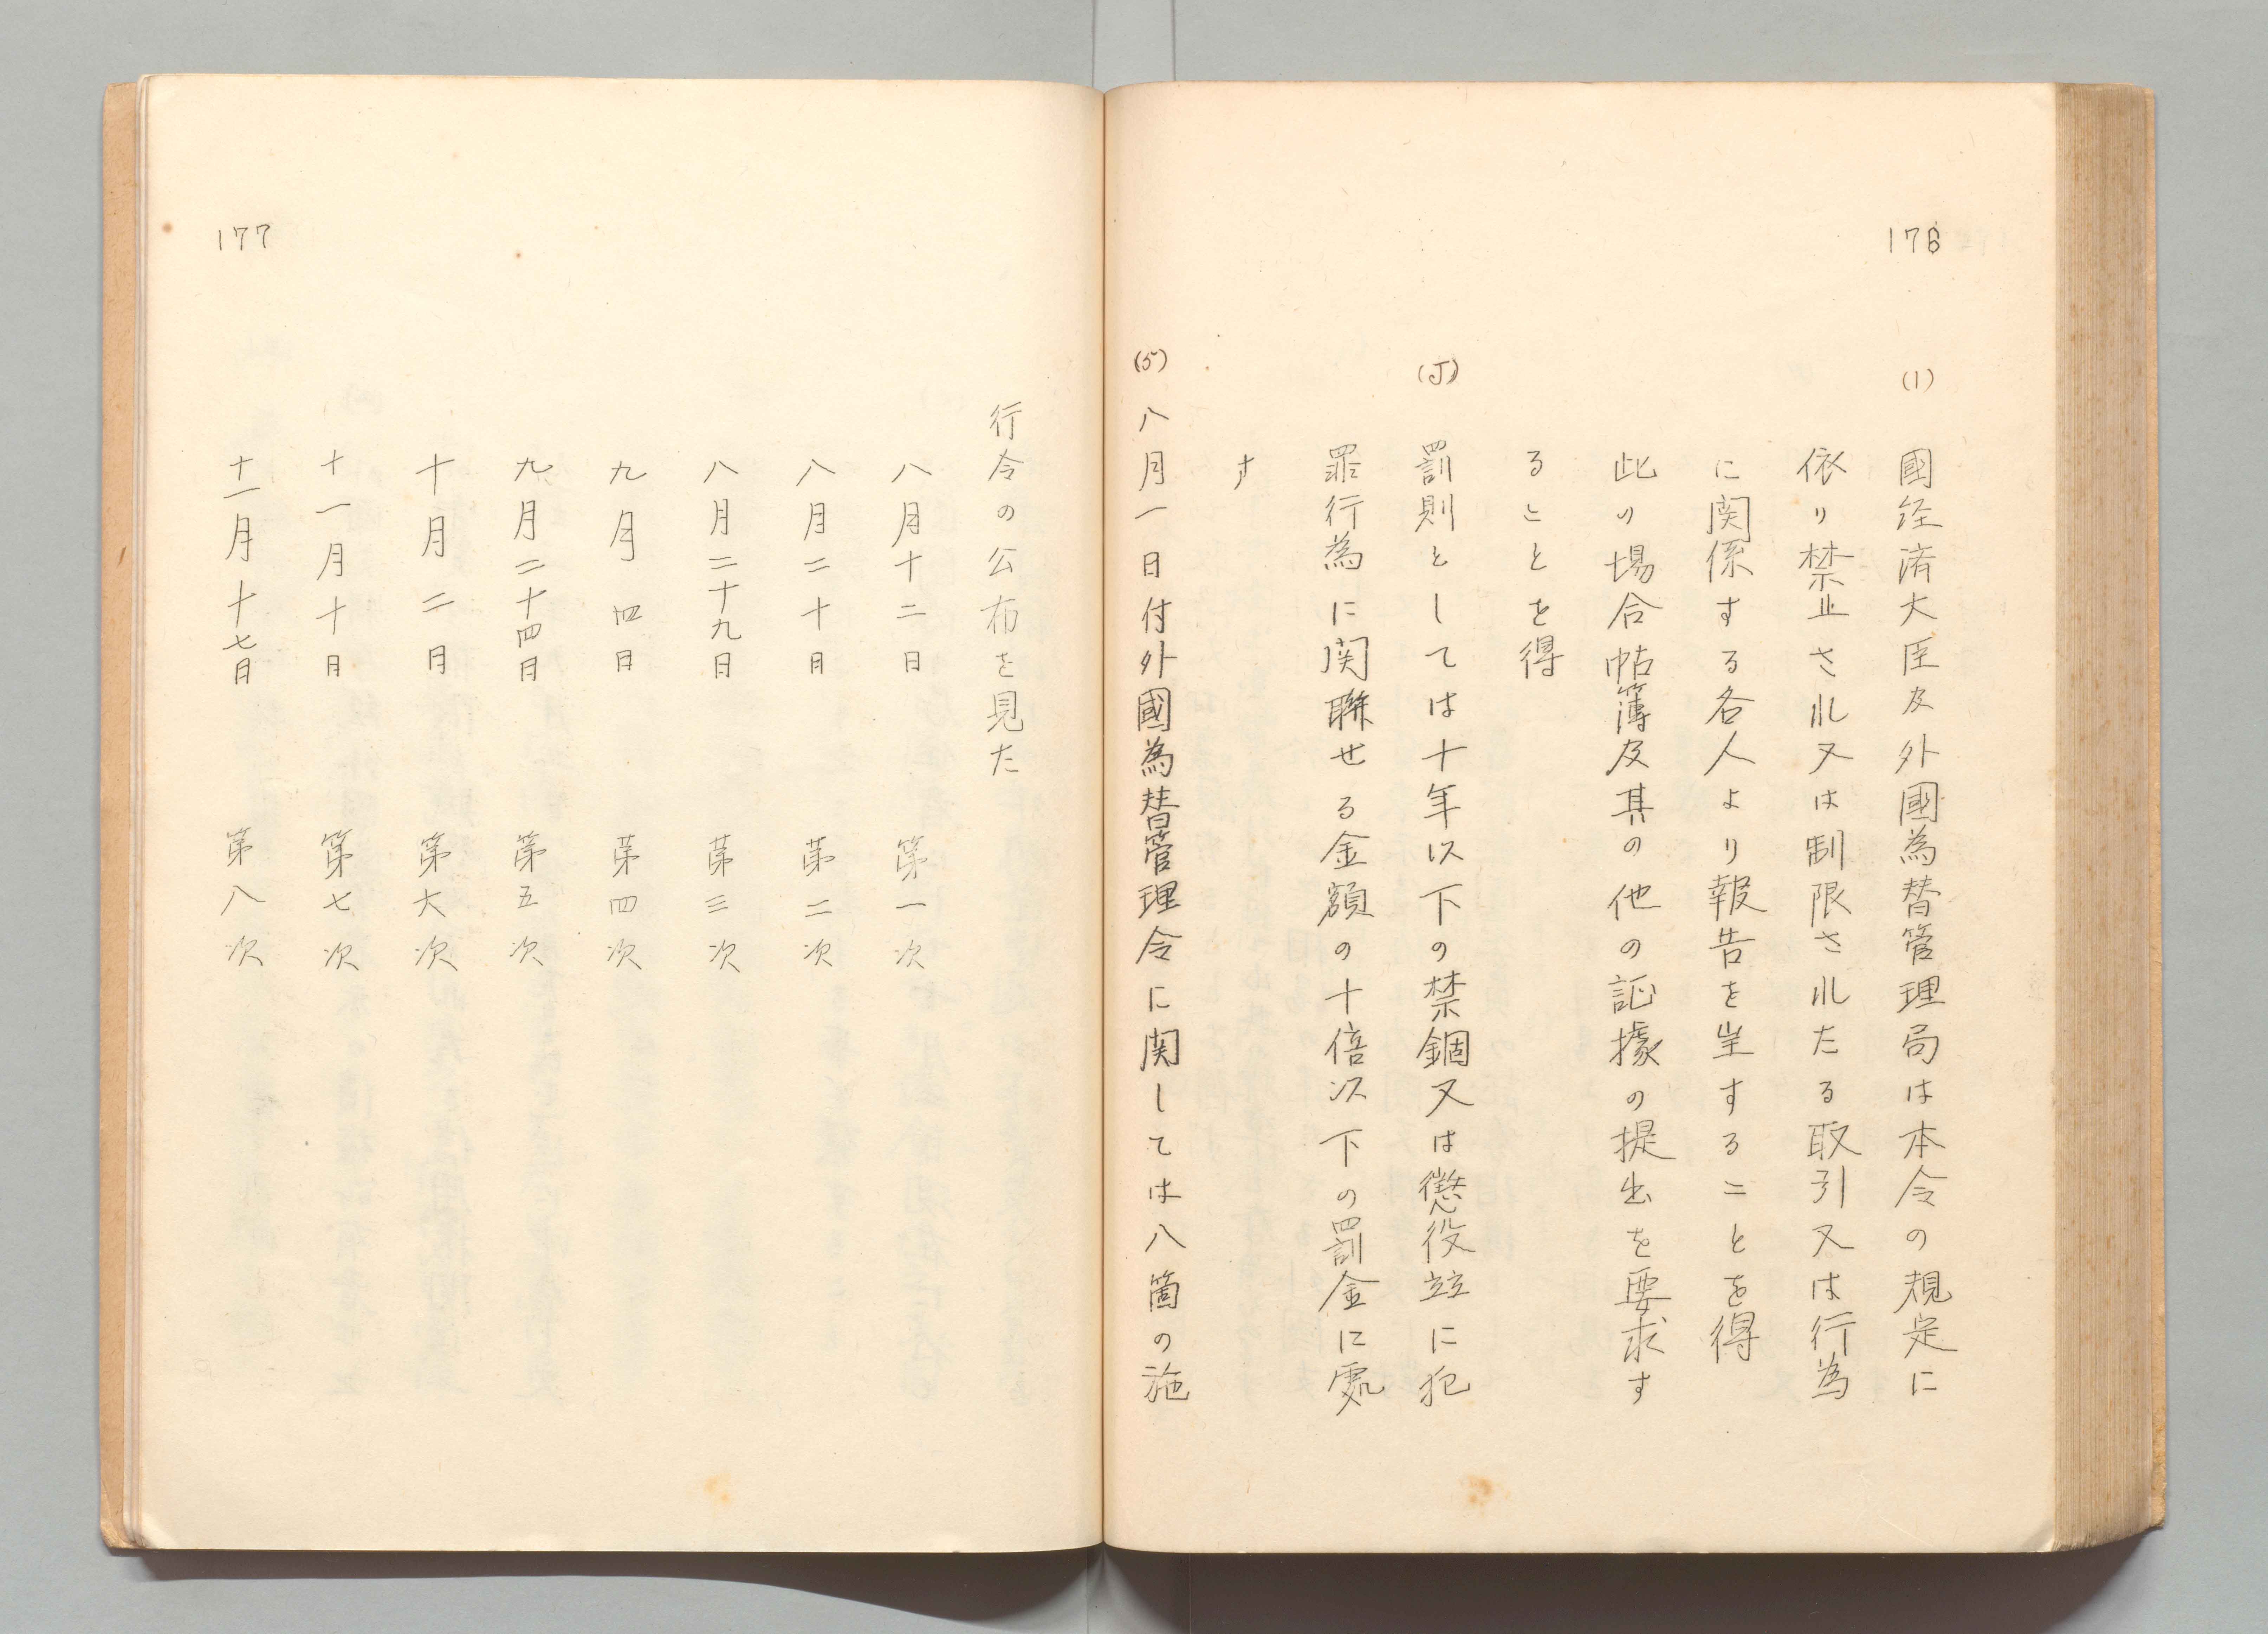 176
(I) 國経済大臣及外國為替管理局は本令の規定に
依り禁止され又は制限されたる取引又は行為
に関係する各人より報告を徴することを得
此の場合帖簿及其の他の証據の提出を要求す
ることを得
(J) 罰則としては十年以下の禁錮又は懲役竝に犯
罪行為に関聯せる金額の十倍以下の罰金に處
す
(5) 八月一日付外國為替管理令に関しては八箇の施
177
行令の公布を見た
八月十二日 第一次
八月二十日 第二次
八月二十九日 第三次
九月四日 第四次
九月二十四日 第五次
十月二日 第六次
十一月十日 第七次
十一月十七日 第八次